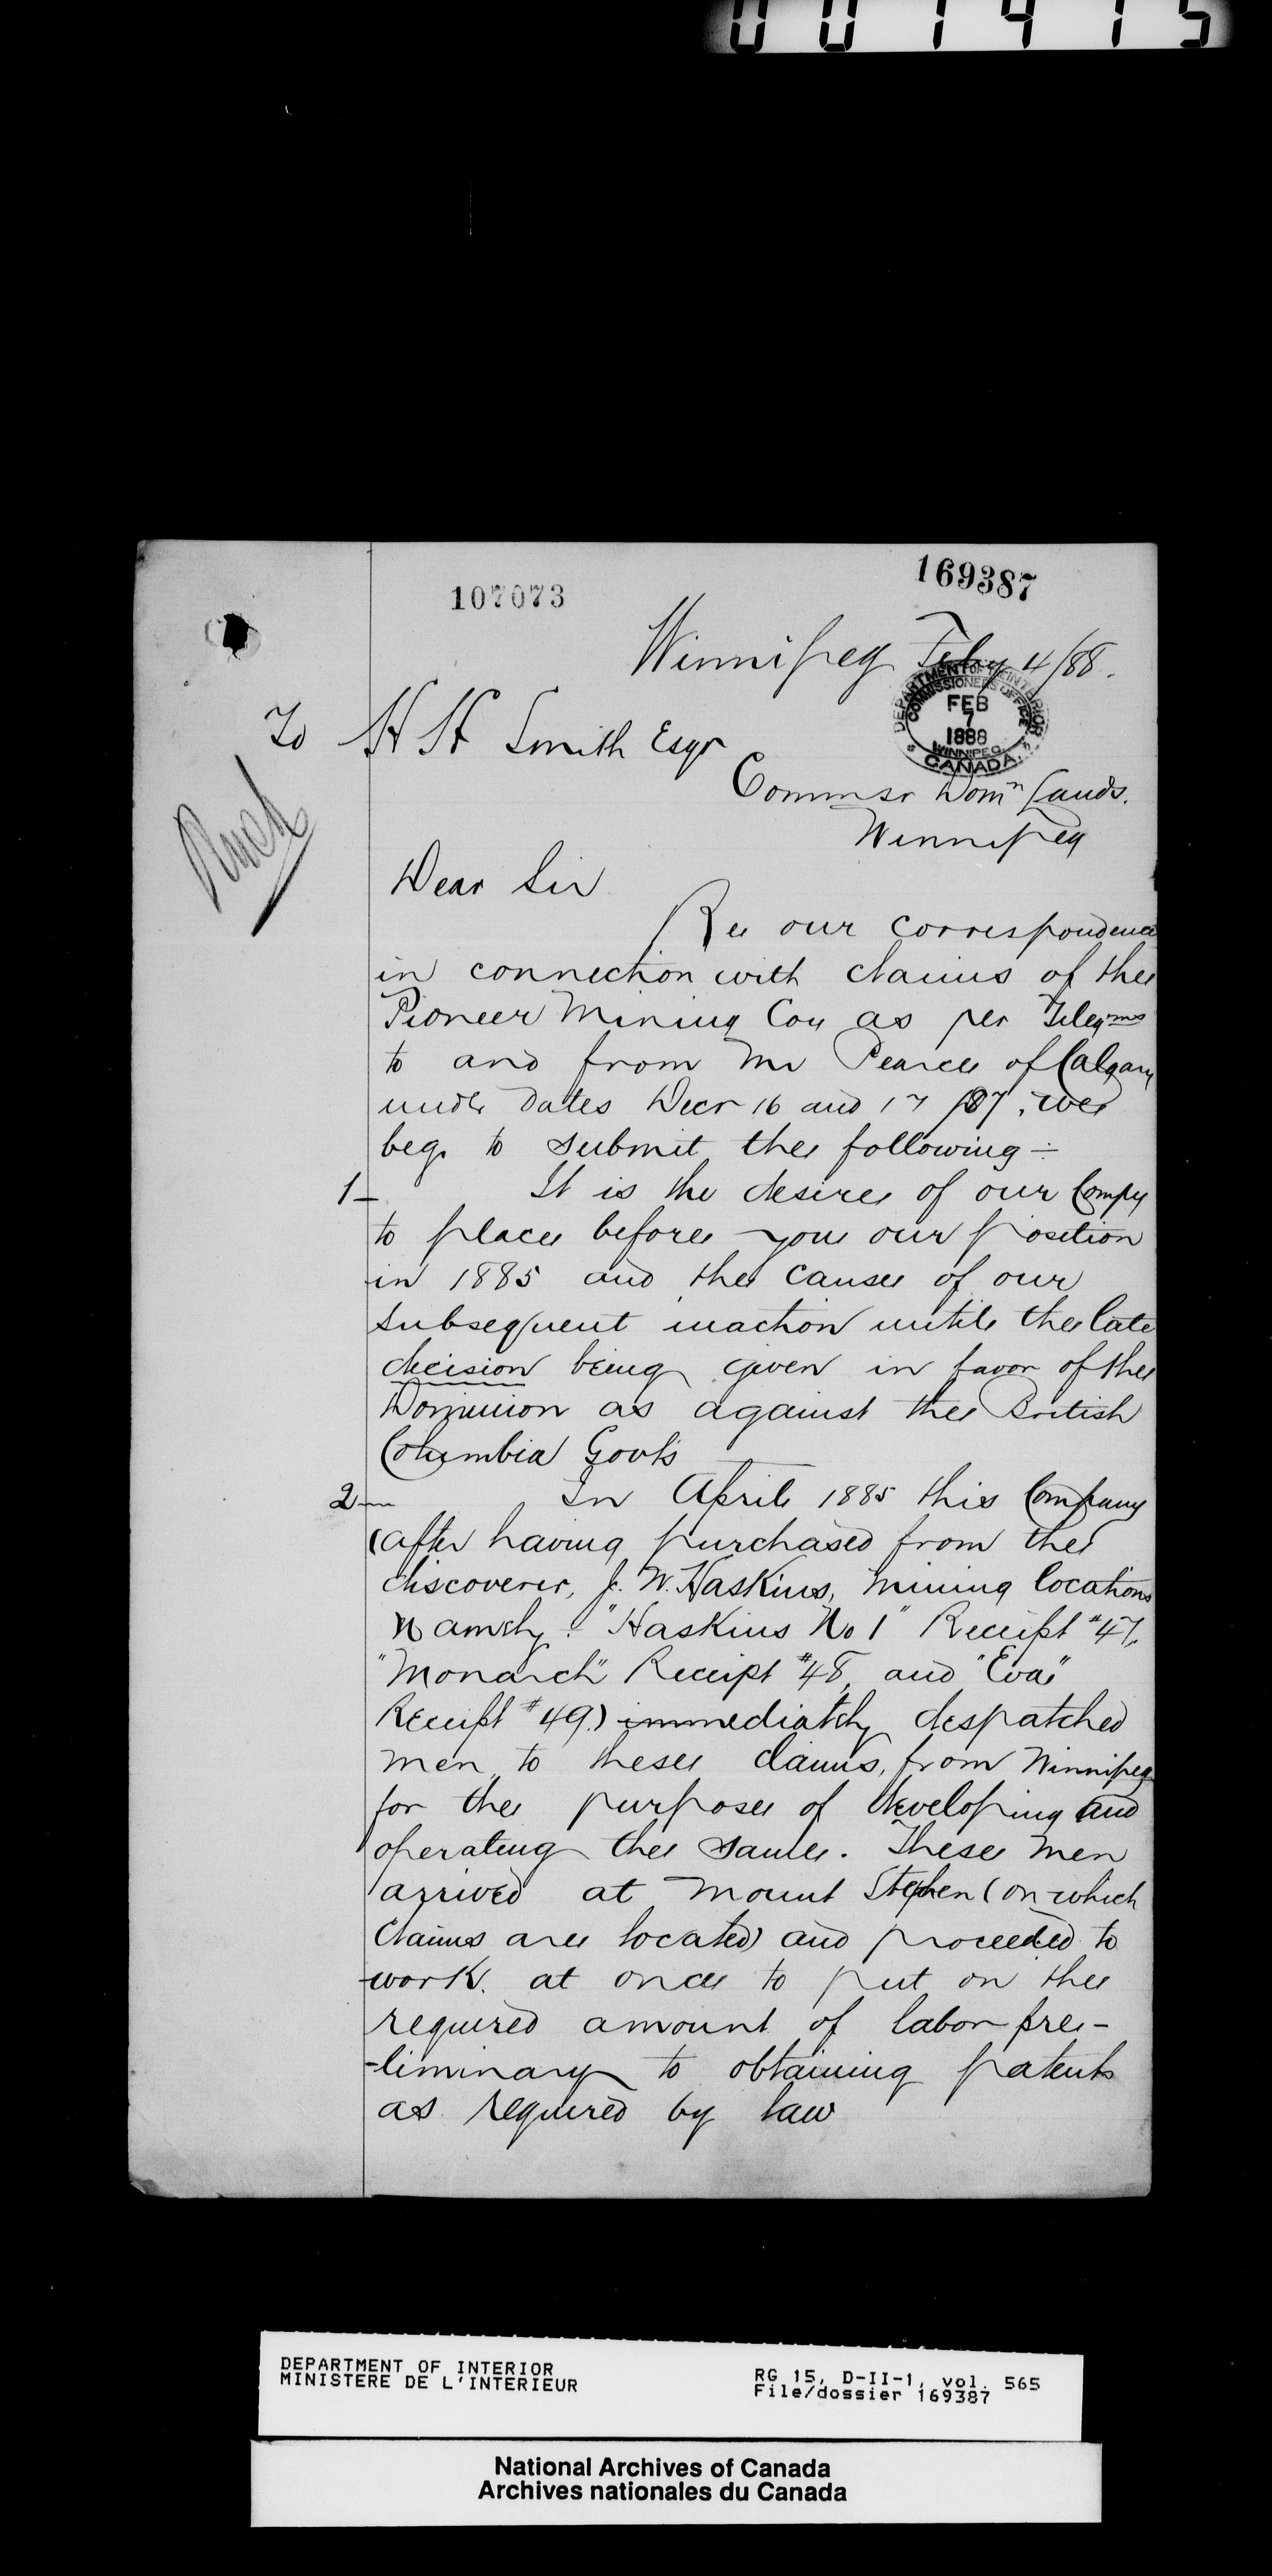 001415
169387
107073
Winnipeg Feby 4/88.
DEPARTMENT OF THE INTERIOR
COMMISSIONER'S OFFICE
FEB
7
1888
WINNIPEG
CANADA
To H H Smith Esqr
Commsr Domn Lands.
Winnipeg
Dear Sir
Re our correspondence
in connection with claims of the
Pioneer Mining Coy as per Telegms
to and from Mr Pearce of Calgary
under dates Decr 16 and 17 /87, we
beg to submit the following –
1– It is the desire of our Compy
to place before you our position
in 1885 and the cause of our
subsequent inaction until the late
decision being given in favor of the
Dominion as against the British
Columbia Govts
2– In April 1885 this Company
(after having purchased from the
discoverer, J. W. Haskins, mining locations
namely: "Haskins No 1" Receipt #47,
"Monarch" Receipt #48, and "Eva"
Receipt #49) immediately despatched
men to these claims, from Winnipeg
for the purpose of developing and
operating the same. These men
arrived at Mount Stephen (on which
claims are located) and proceeded to
work at once to put on the
required amount of labor pre-
-liminary to obtaining patents
as required by law
DEPARTMENT OF INTERIOR
MINISTERE DE L'INTERIEUR
RG 15, D-II-1, vol. 565
File/dossier 169387
National Archives of Canada
Archives nationales du Canada